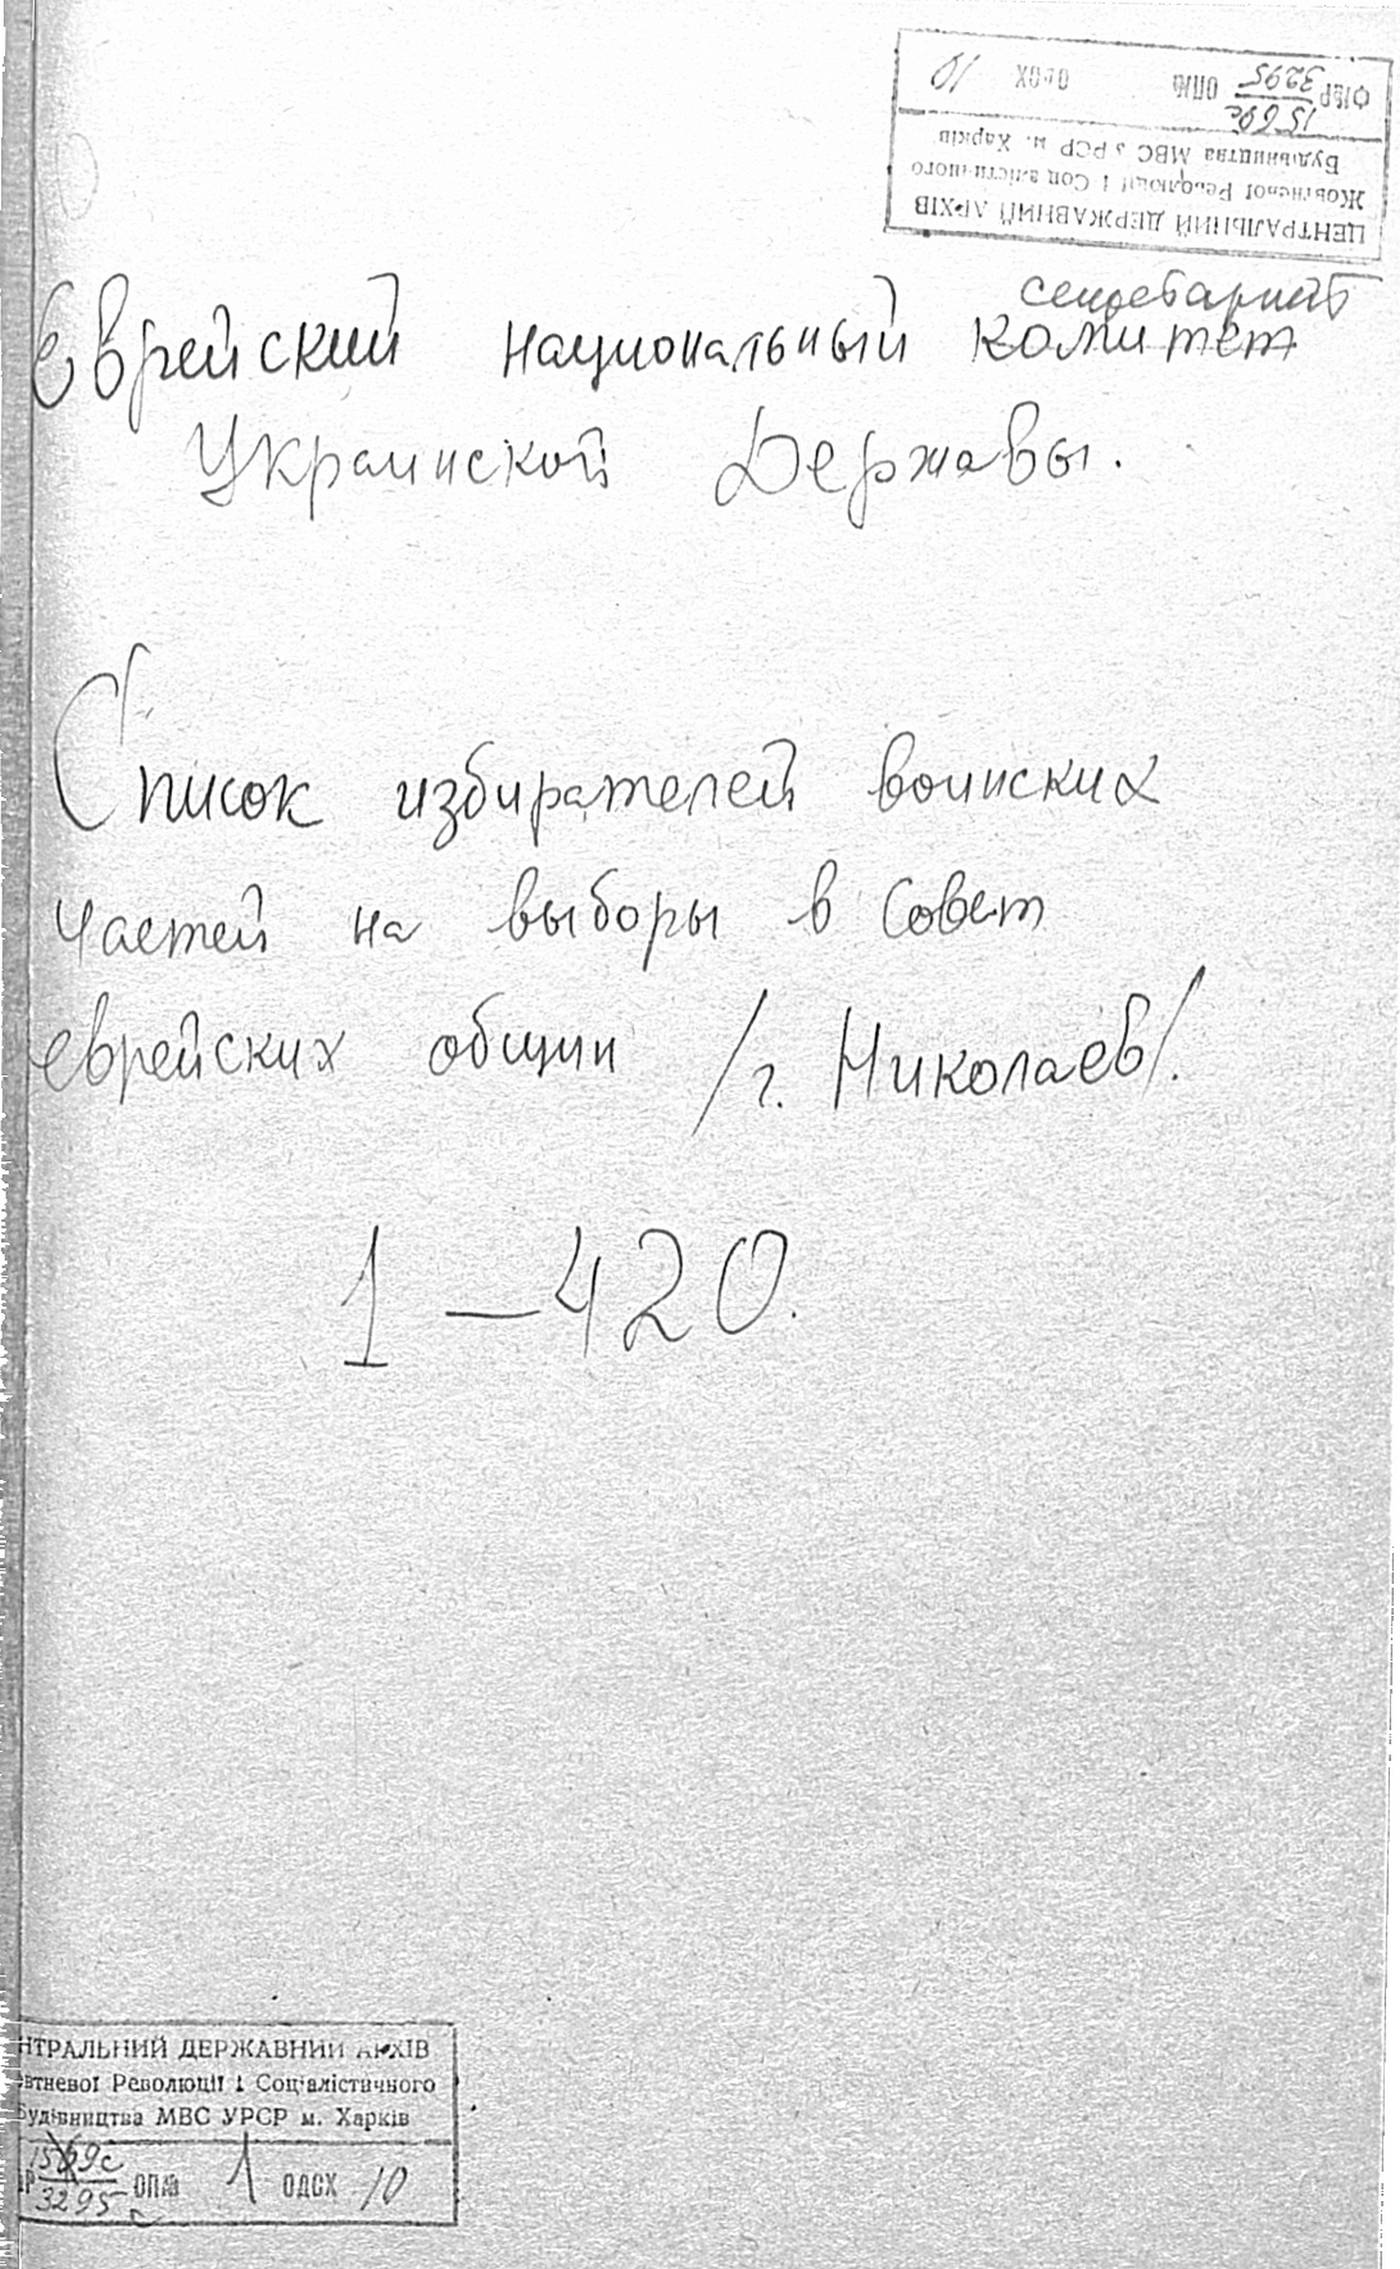 ЦЕНТРАЛЬНИЙ ДЕРЖАВНИЙ АРХІВ
Жовтневої Революції і Соціалістичного
Будівництва МВС УРСР м. Харків
1569с
3295 ОПИС ОДСХ 10
секретариат
Еврейский национальный комитет
Украинской Державы.
Список избирателей воинских
частей на выборы в Совет
еврейских общин /г. Николаев/.
1 — 420.
НТРАЛЬНИЙ ДЕРЖАВНИЙ АРХІВ
овтневої Революції і Соціалістичного
Будівництва МВС УРСР м. Харків
1569с
3295 1 ОДСХ 10